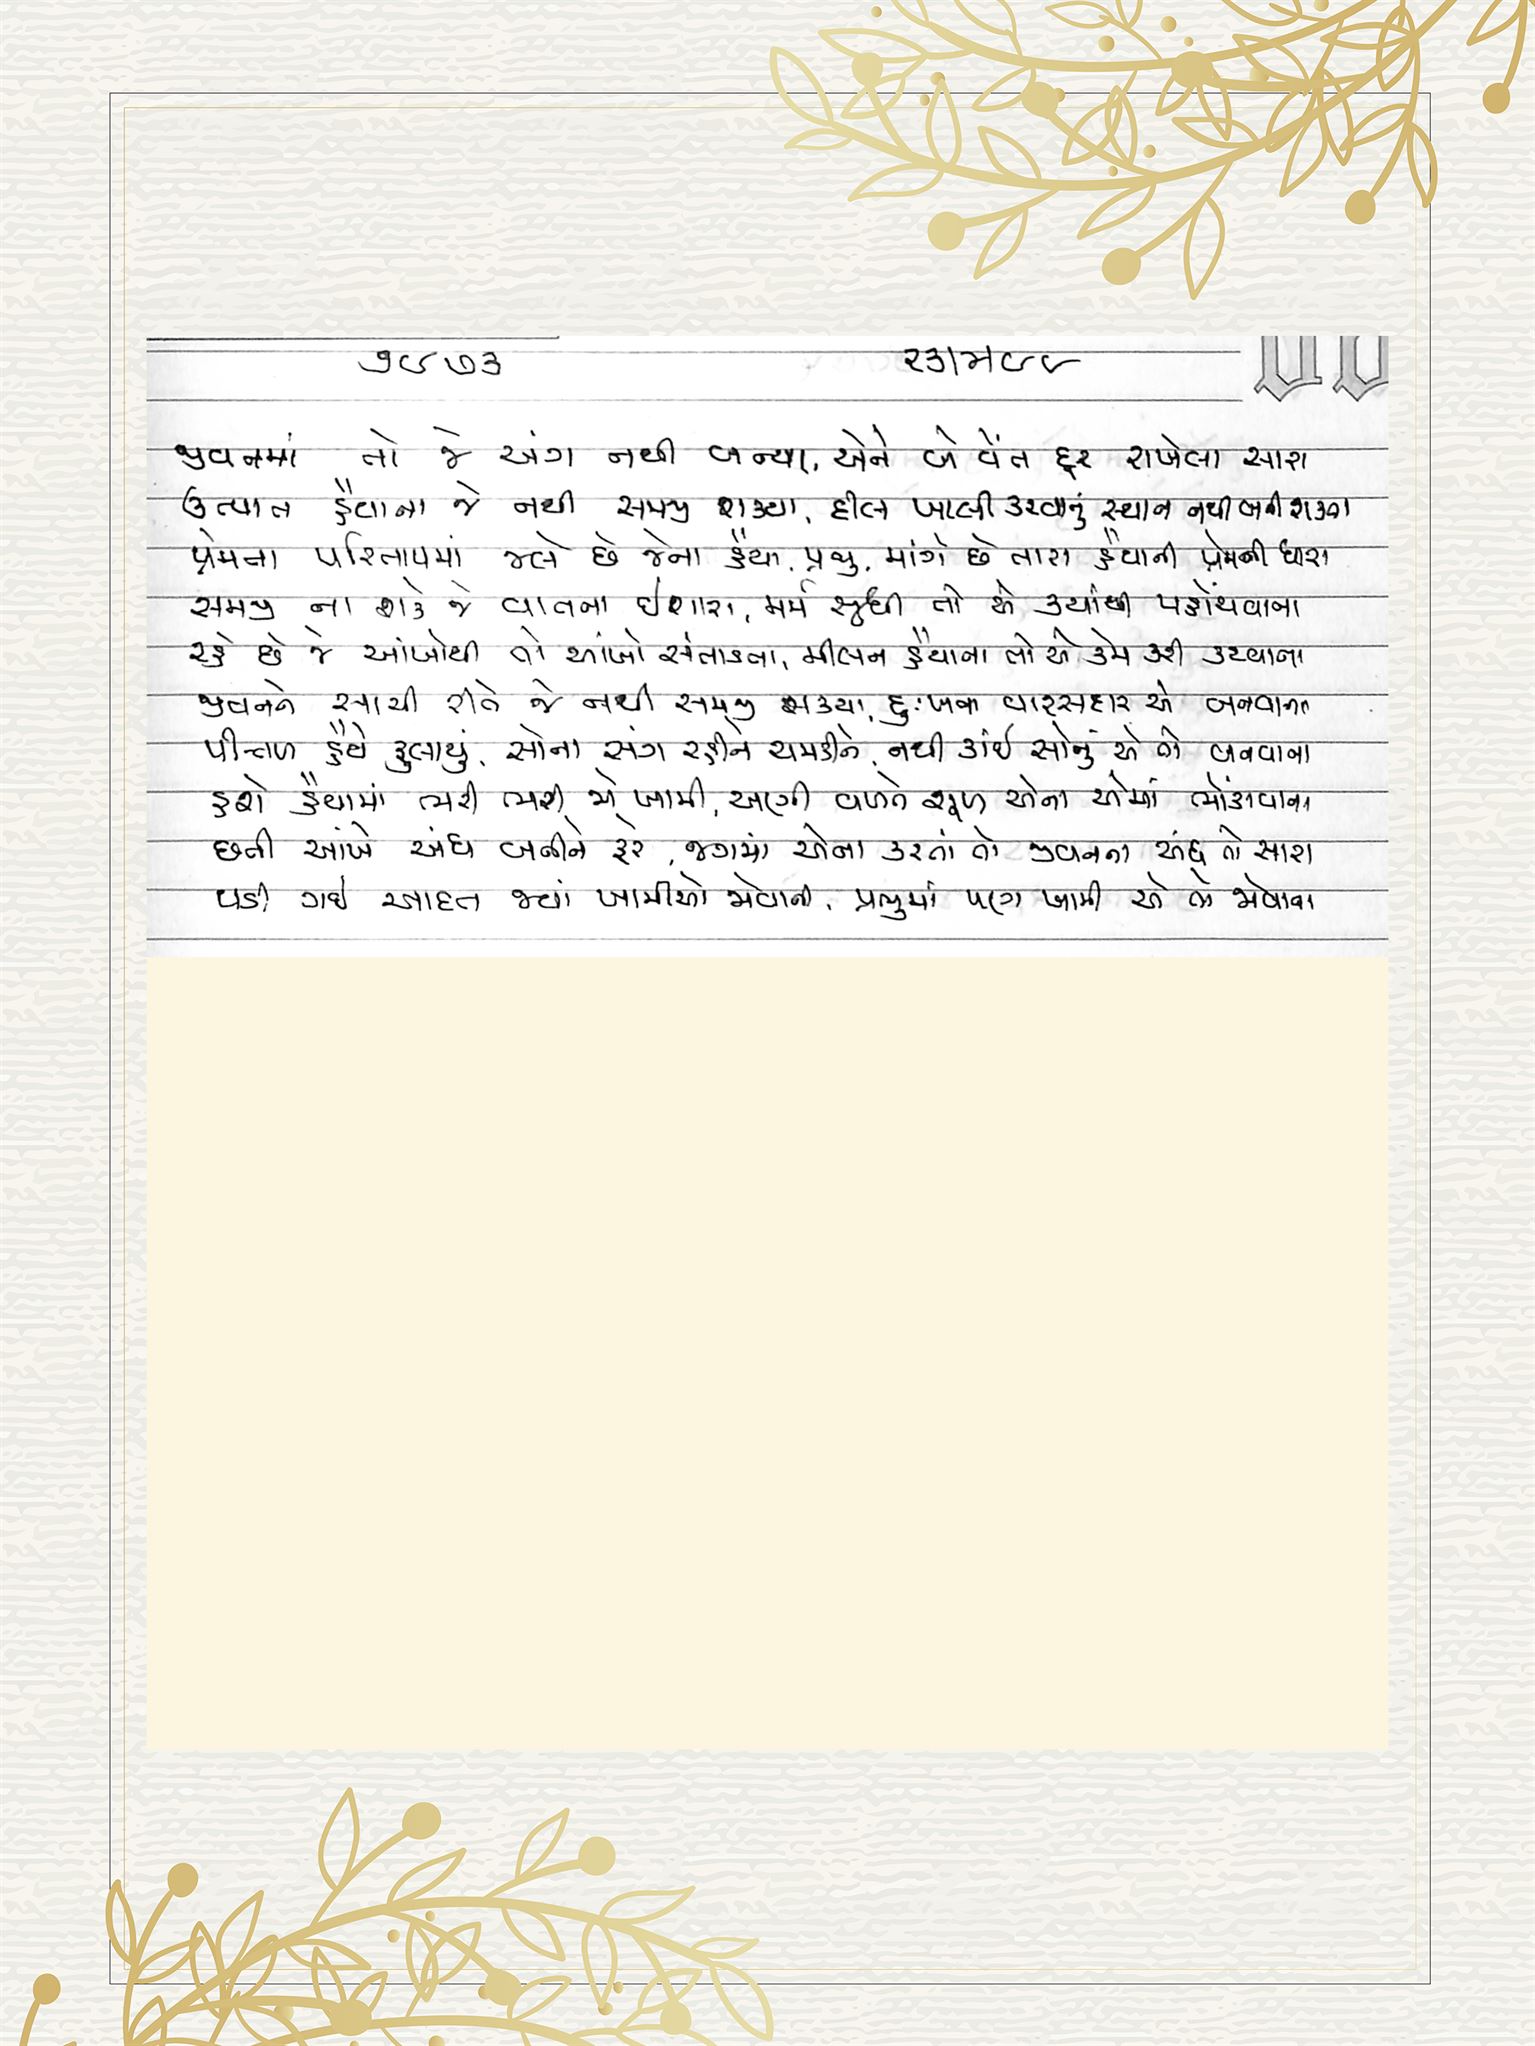 ૭૯૭૩ ૨૩।મ૯૯
જીવનમાં તો જે અંગ નથી બન્યા, એને બે વેંત દૂર રાખેલા સારા
ઉત્પાત હૈયાના જે નથી સમજી શક્યા, દીલ ખાલી કરવાનું સ્થાન નથી બની શકવા
પ્રેમના પરિતાપમાં જલે છે જેના હૈયા, પ્રભુ, માંગે છે તારા હૈયાની પ્રેમની ધારા
સમજી ના શકે જે વાતના ઈશારા, મર્મ સુધી તો એ ક્યાંથી પહોંચવાના
રહે છે જે આંખોથી તો આંખો સંતાડતા, મીલન હૈયાના તો એ કેમ કરી કરવાના
જીવનને સાચી રીતે જે નથી સમજી શક્યા, દુઃખના વારસદાર એ બનવાના
પીત્તળ હૈયે ફુલાયું, સોના સંગ રહીને ચમકીને, નથી કાંઈ સોનું એ તો બનવાના
હશે હૈયામાં ભરી ભરી જો ખામી, અણી વખતે શૂળ એના એમાં ભોંકાવાના
છતી આંખે અંધ બનીને ફરે, જગમાં એના કરતાં તો જીવનના અંધ તો સારા
પડી ગઈ આદત જ્યાં ખામીઓ જોવાની, પ્રભુમાં પણ ખામી એ તો જોવાના